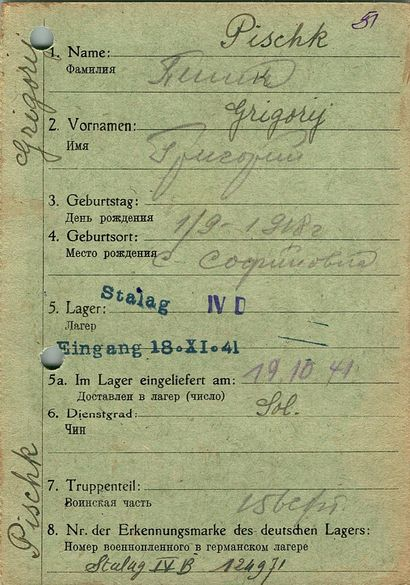 Pischk
1. Name:
Фамилия
2. Vornamen: Grigorij
Имя Григорий
3. Geburtstag:
День рождения 1/9-1918 г
4. Geburtsort:
Место рождения с
5. Lager: Stalag IV D
Лагер
Eingang 18.XI.41
5a. Im Lager eingeliefert am: 19.10.41.
Доставлен в лагерь (число)
6. Dienstgrad: Sol.
Чин
7. Truppenteil:
Воинская часть
8. Nr. der Erkennungsmarke des deutschen Lagers:
Номер военнопленного в германском лагере
Stalag IV B 124971
Grigorij
Pischk